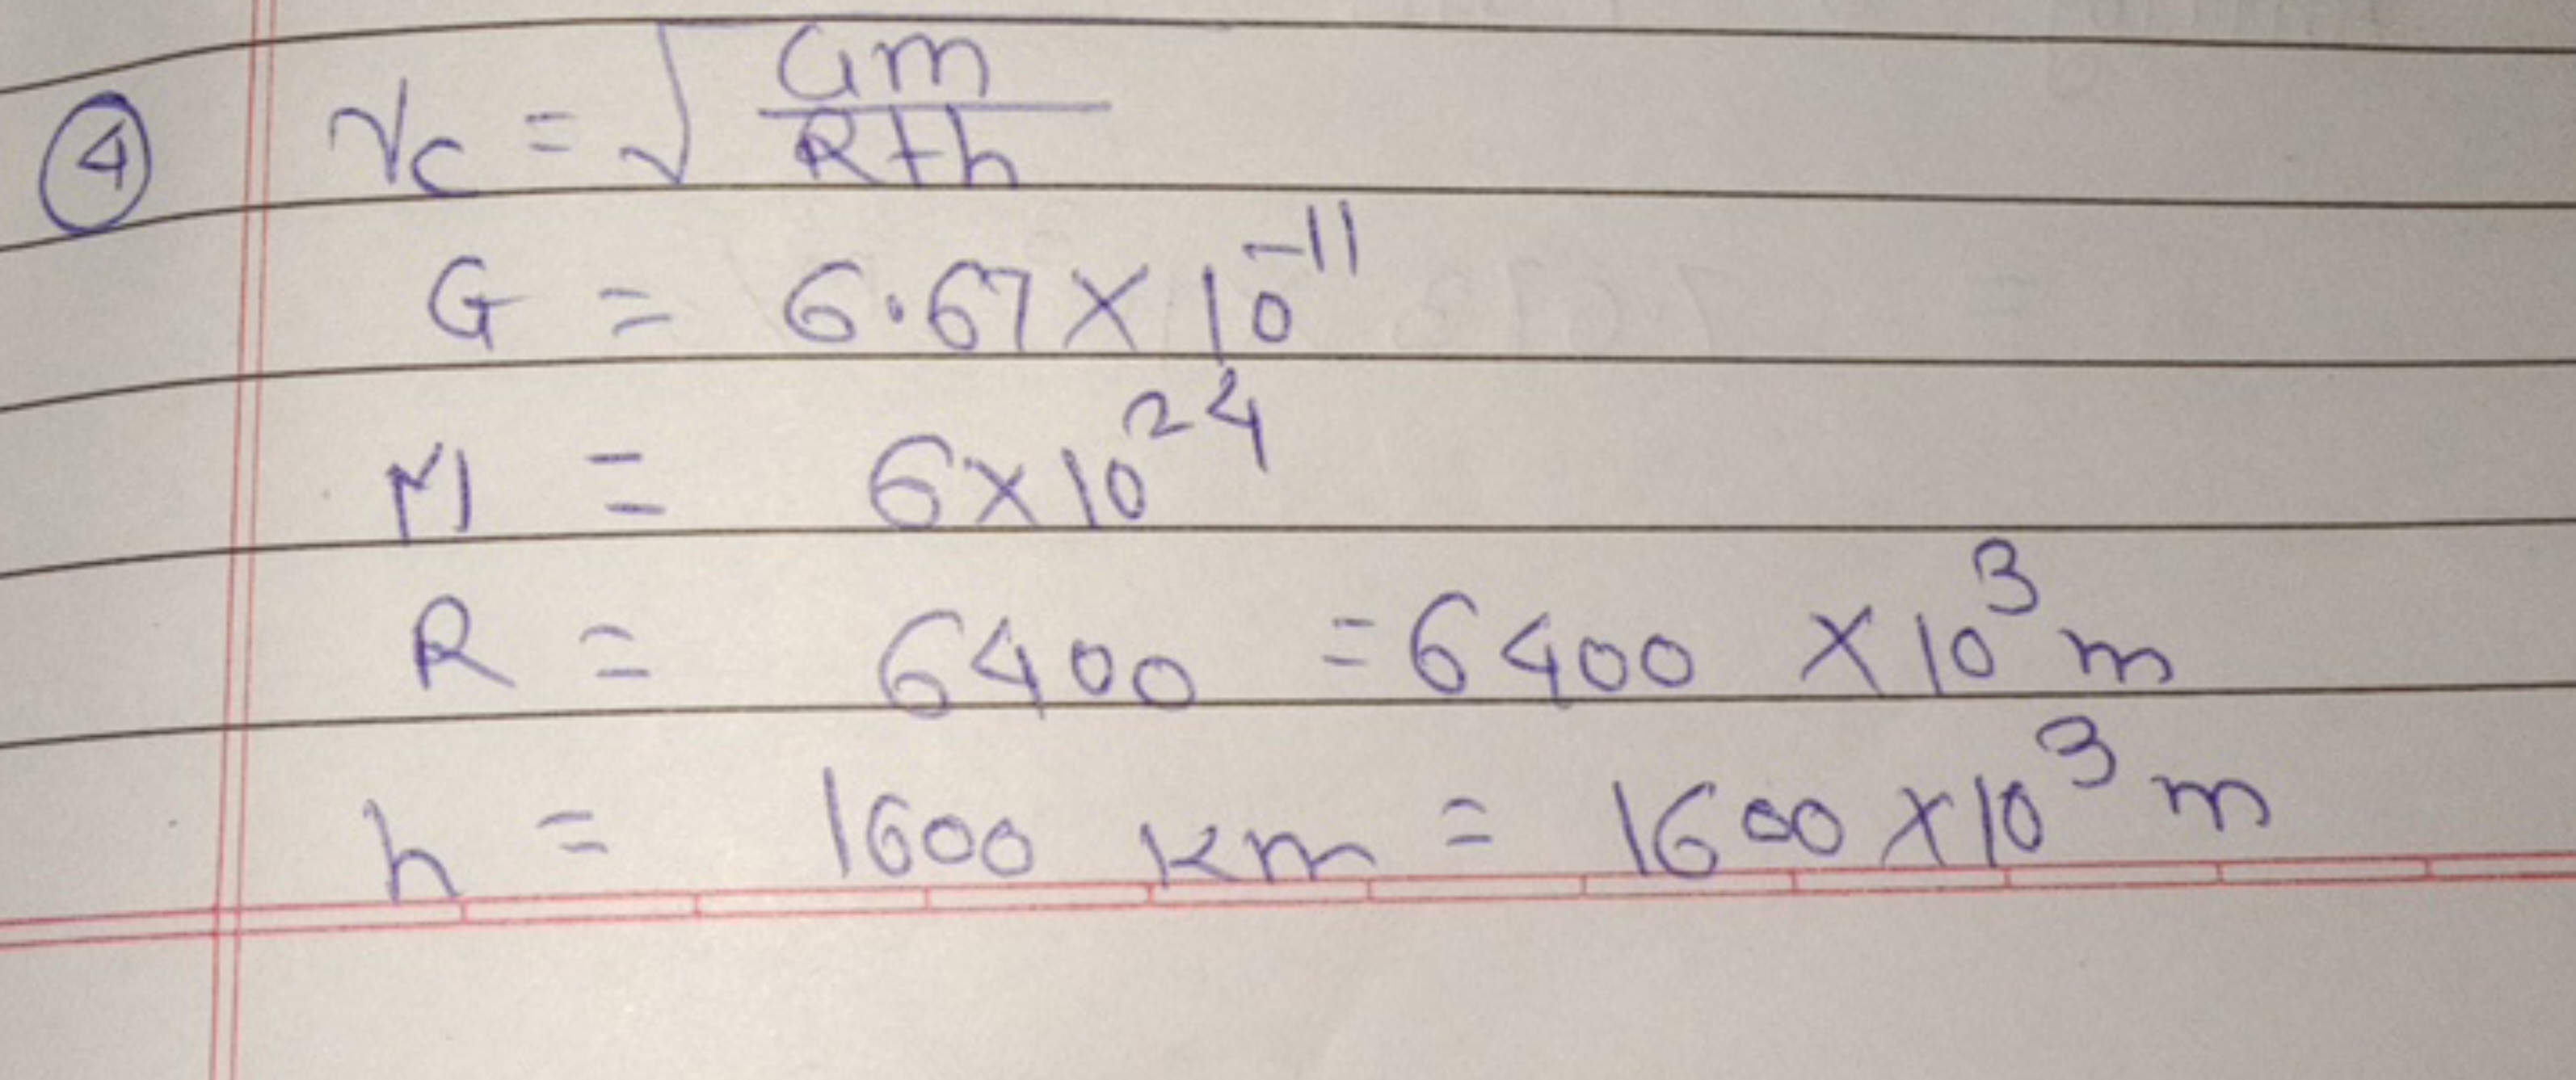 4 Vc = √ Gm / R+h
G = 6.67 × 10⁻¹¹
M = 6×10²⁴
R = 6400 = 6400 × 10³ m
h = 1600 km = 1600 ×10³ m